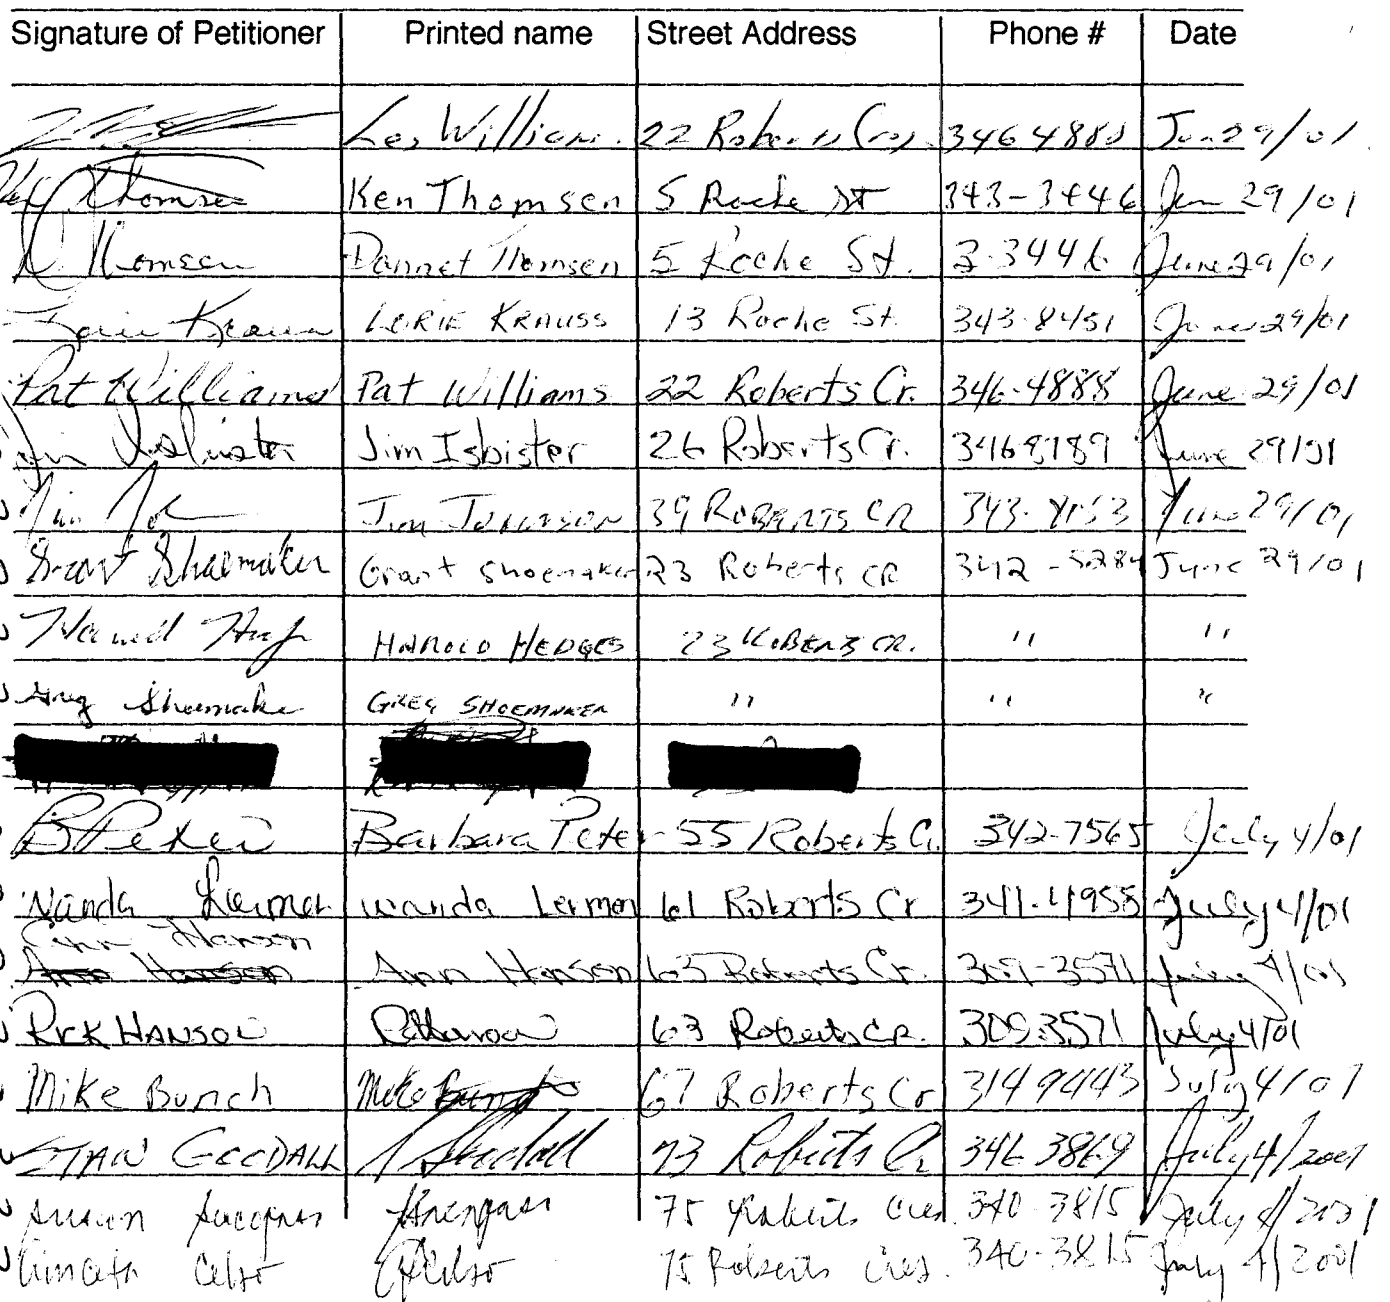 Signature of Petitioner Printed name Street Address Phone # Date
Les William 22 Roberts Cres 346 4888 Jun 29/01
Thomsen Ken Thomsen 5 Roche St 343-3446 Jun 29/01
D. Thomsen Dannet Thomsen 5 Roche St. 3-3446 June 29/01
Lorie Krauss LORIE KRAUSS 13 Roche St. 343-8451 June 29/01
Pat Williams Pat Williams 22 Roberts Cr. 346-4888 June 29/01
Jim Isbister Jim Isbister 26 Roberts Cr. 346 8989 June 29/01
Jim 39 ROBERTS CR June 29/01
Grant Shoemaker Grant Shoemaker 23 Roberts CR 342-5284 June 29/01
Harold HAROLD HEDGES 23 ROBERTS CR. " "
Greg Shoemaker GREG SHOEMAKER " " "
B Peter Barbara Peter- 55 Roberts Cr. 342-7565 July 4/01
Wanda Lermen wanda Lermen 61 Roberts Cr 341-4955 July 4/01
Ann Hanson
Ann Hanson Ann Hanson 63 Roberts Cr. 309-3571 July 4/01
RICK HANSON 63 Roberts CR. 309.3571 July 4/01
Mike Bunch Mike Bunch 67 Roberts Cr 314 9443 July 4/01
STAN GOODALL S Goodall 73 Roberts Cr 346 3869 July 4/2001
75 Roberts Cres. 340-3815 July 4/2001
75 Roberts Cres. 340-3815 July 4/2001